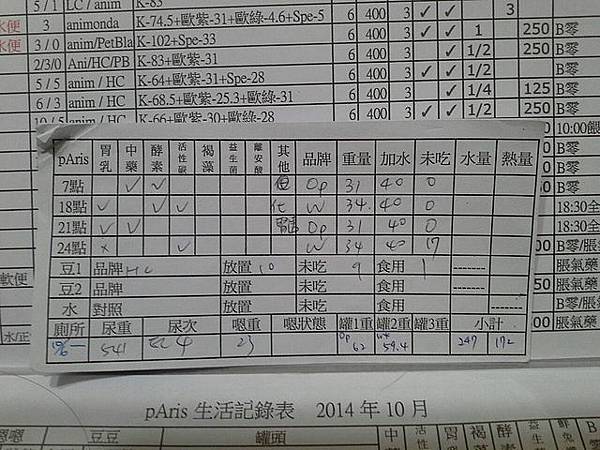 5 / 1 LC / anim K-83
水便 3 animonda K-74.5+歐紫-31+歐綠-4.6+Spe-5 6 400 3 ✓ ✓ 3
水便 3 / 0 anim/PetBla K-102+Spe-33 6 400 3 ✓ ✓ 1 250 B零
2/3/0 Ani/HC/PB K-83+歐紫-31 6 400 3 ✓ ✓ 1/2 250 B零
5 / 5 anim / HC K-64+歐紫-31+Spe-28 6 400 3 ✓ ✓ 1/2 B零
6 / 3 anim / HC K-68.5+歐紫-25.3+歐綠-31 6 400 3 ✓ ✓ 1/4 125 B零
10/5 anim / HC K-66+歐紫-30+歐綠-28 6 400 3 ✓ ✓ 1/2 250 B零
10:00餵
pAris 胃乳 中藥 酵素 活性碳 褐藻 益生菌 離安酸 其他 品牌 重量 加水 未吃 水量 熱量
7點 ✓ ✓ Op 31 40 0
18點 ✓ ✓ ✓ 化 W 34. 40 0
21點 ✓ ✓ Op 31 40 0
24點 × ✓ W 34 40 17
豆1 品牌 HC 放置 10 未吃 9 食用 1 -------
豆2 品牌 放置 未吃 食用 -------
水 對照 放置 未吃 食用 -------
廁所 尿重 尿次 嗯重 嗯狀態 罐1重 罐2重 罐3重 小計
541 4 23 Op 62 59.4 247 172
B零
18:30全
18:30全
B零/脹
軟便 50 脹氣藥
50 脹氣藥
B零/脹
水/正 00 脹氣藥
pAris 生活記錄表 2014 年 10 月
嗯嗯 豆豆 罐頭 中 活性 胃乳 褐藻 酵素 益生 鮮兔 B零